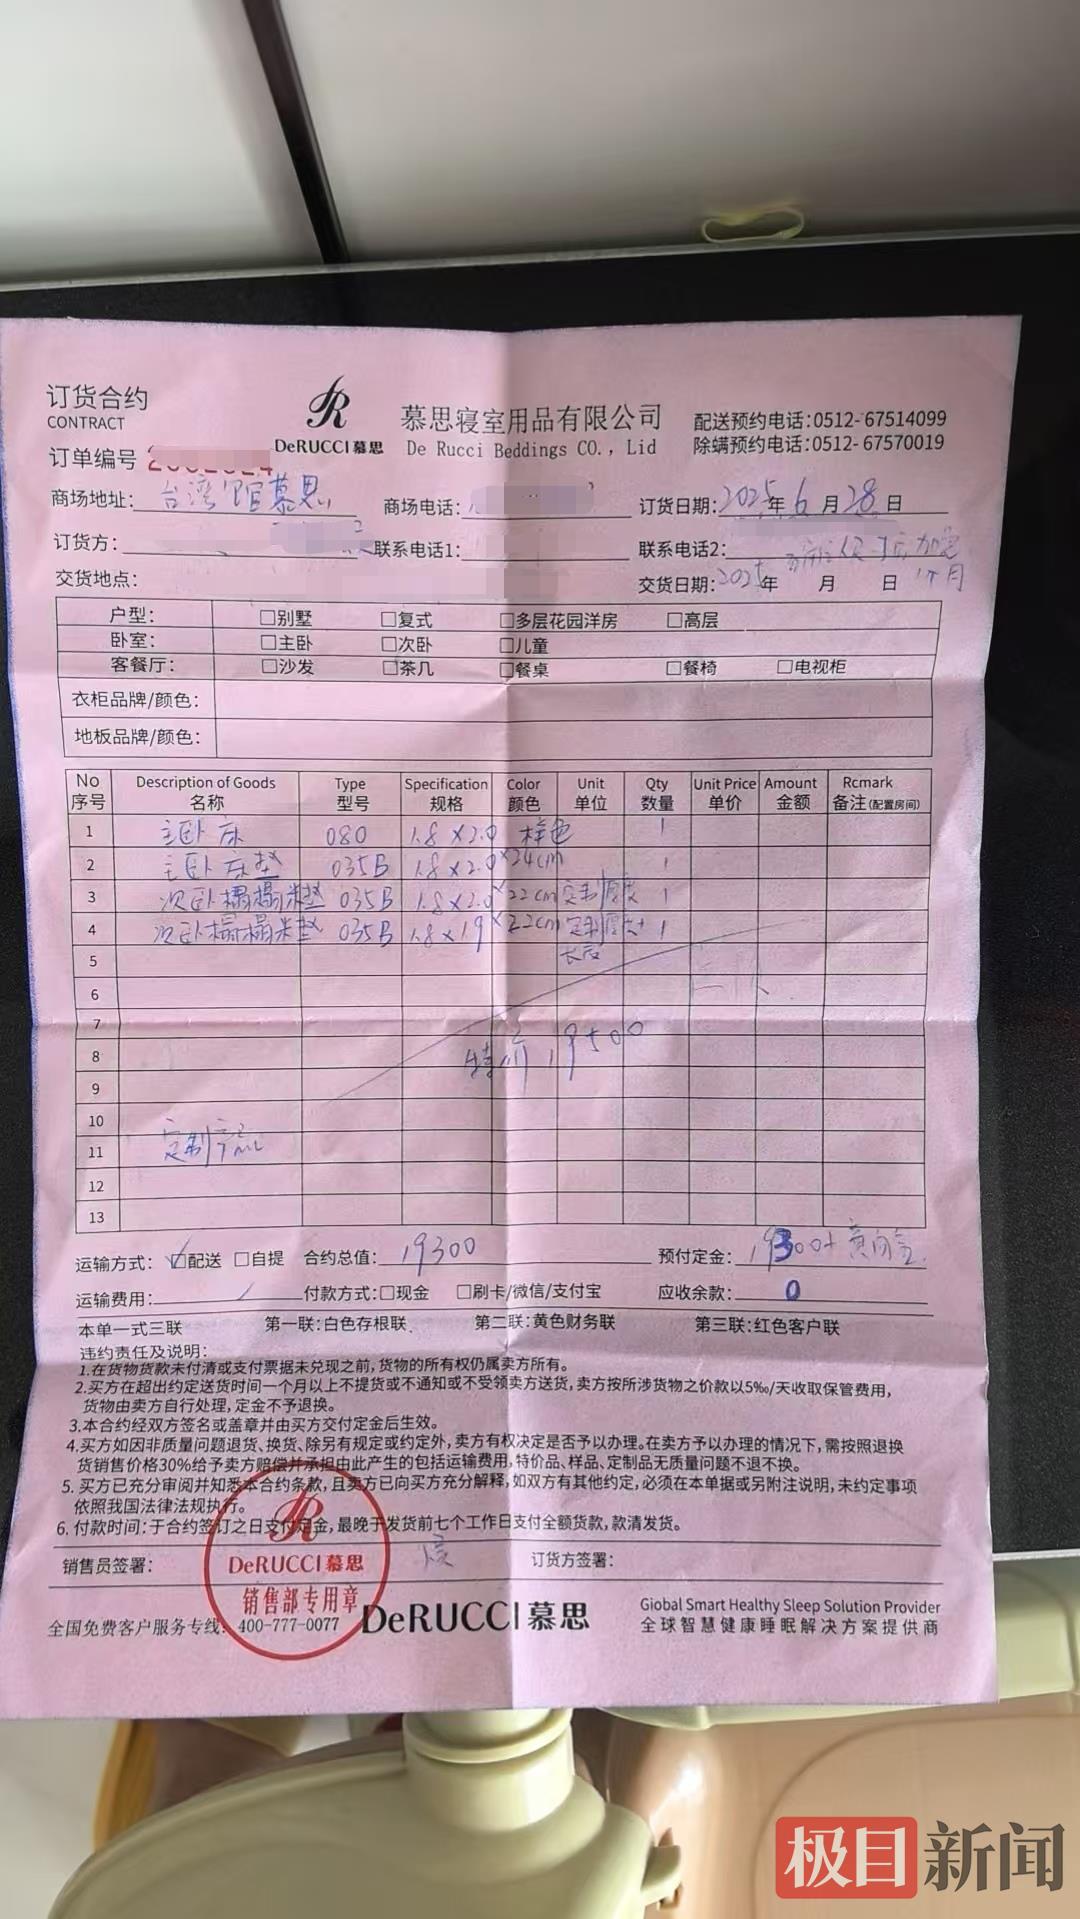 订货合约
CONTRACT
DeRUCCI慕思
慕思寝室用品有限公司
De Rucci Beddings CO., Lid
配送预约电话:0512-67514099
除螨预约电话:0512-67570019
订单编号
商场地址: 台湾馆慕思 商场电话: 订货日期:2025年6月28日
订货方: 联系电话1: 联系电话2:
交货地点: 交货日期:2025年 月 日 1个月
户型: □别墅 □复式 □多层花园洋房 □高层
卧室: □主卧 □次卧 □儿童
客餐厅: □沙发 □茶几 □餐桌 □餐椅 □电视柜
衣柜品牌/颜色:
地板品牌/颜色:
No Description of Goods Type Specification Color Unit Qty Unit Price Amount Rcmark
序号 名称 型号 规格 颜色 单位 数量 单价 金额 备注(配置房间)
1 主卧床 080 1.8×2.0 样色 1
2 主卧床垫 035B 1.8×2.0×24cm 1
3 次卧榻榻米垫 035B 1.8×2.0×22cm 定制厚度 1
4 次卧榻榻米垫 035B 1.8×19×22cm 定制厚度+ 1
5 长度
6
7
8 特价 19500
9
10
11 定制产品
12
13
运输方式: ☑配送 □自提 合约总值: 19300 预付定金: 19300+黄向金
运输费用: / 付款方式:□现金 □刷卡/微信/支付宝 应收余款: 0
本单一式三联 第一联:白色存根联. 第二联:黄色财务联 第三联:红色客户联
违约责任及说明:
1.在货物货款未付清或支付票据未兑现之前,货物的所有权仍属卖方所有。
2.买方在超出约定送货时间一个月以上不提货或不通知或不受领卖方送货,卖方按所涉货物之价款以5‰/天收取保管费用,
货物由卖方自行处理,定金不予退换。
3.本合约经双方签名或盖章并由买方交付定金后生效。
4.买方如因非质量问题退货、换货、除另有规定或约定外,卖方有权决定是否予以办理。在卖方予以办理的情况下,需按照退换
货销售价格30%给予卖方赔偿并承担由此产生的包括运输费用,特价品、样品、定制品无质量问题不退不换。
5. 买方已充分审阅并知悉本合约条款,且卖方已向买方充分解释,如双方有其他约定,必须在本单据或另附注说明,未约定事项
依照我国法律法规执行。
6. 付款时间:于合约签订之日支付定金,最晚于发货前七个工作日支付全额货款,款清发货。
销售员签署: 订货方签署:
DeRUCCI慕思
销售部专用章
全国免费客户服务专线: 400-777-0077
DeRUCCI慕思
Global Smart Healthy Sleep Solution Provider
全球智慧健康睡眠解决方案提供商
极目新闻